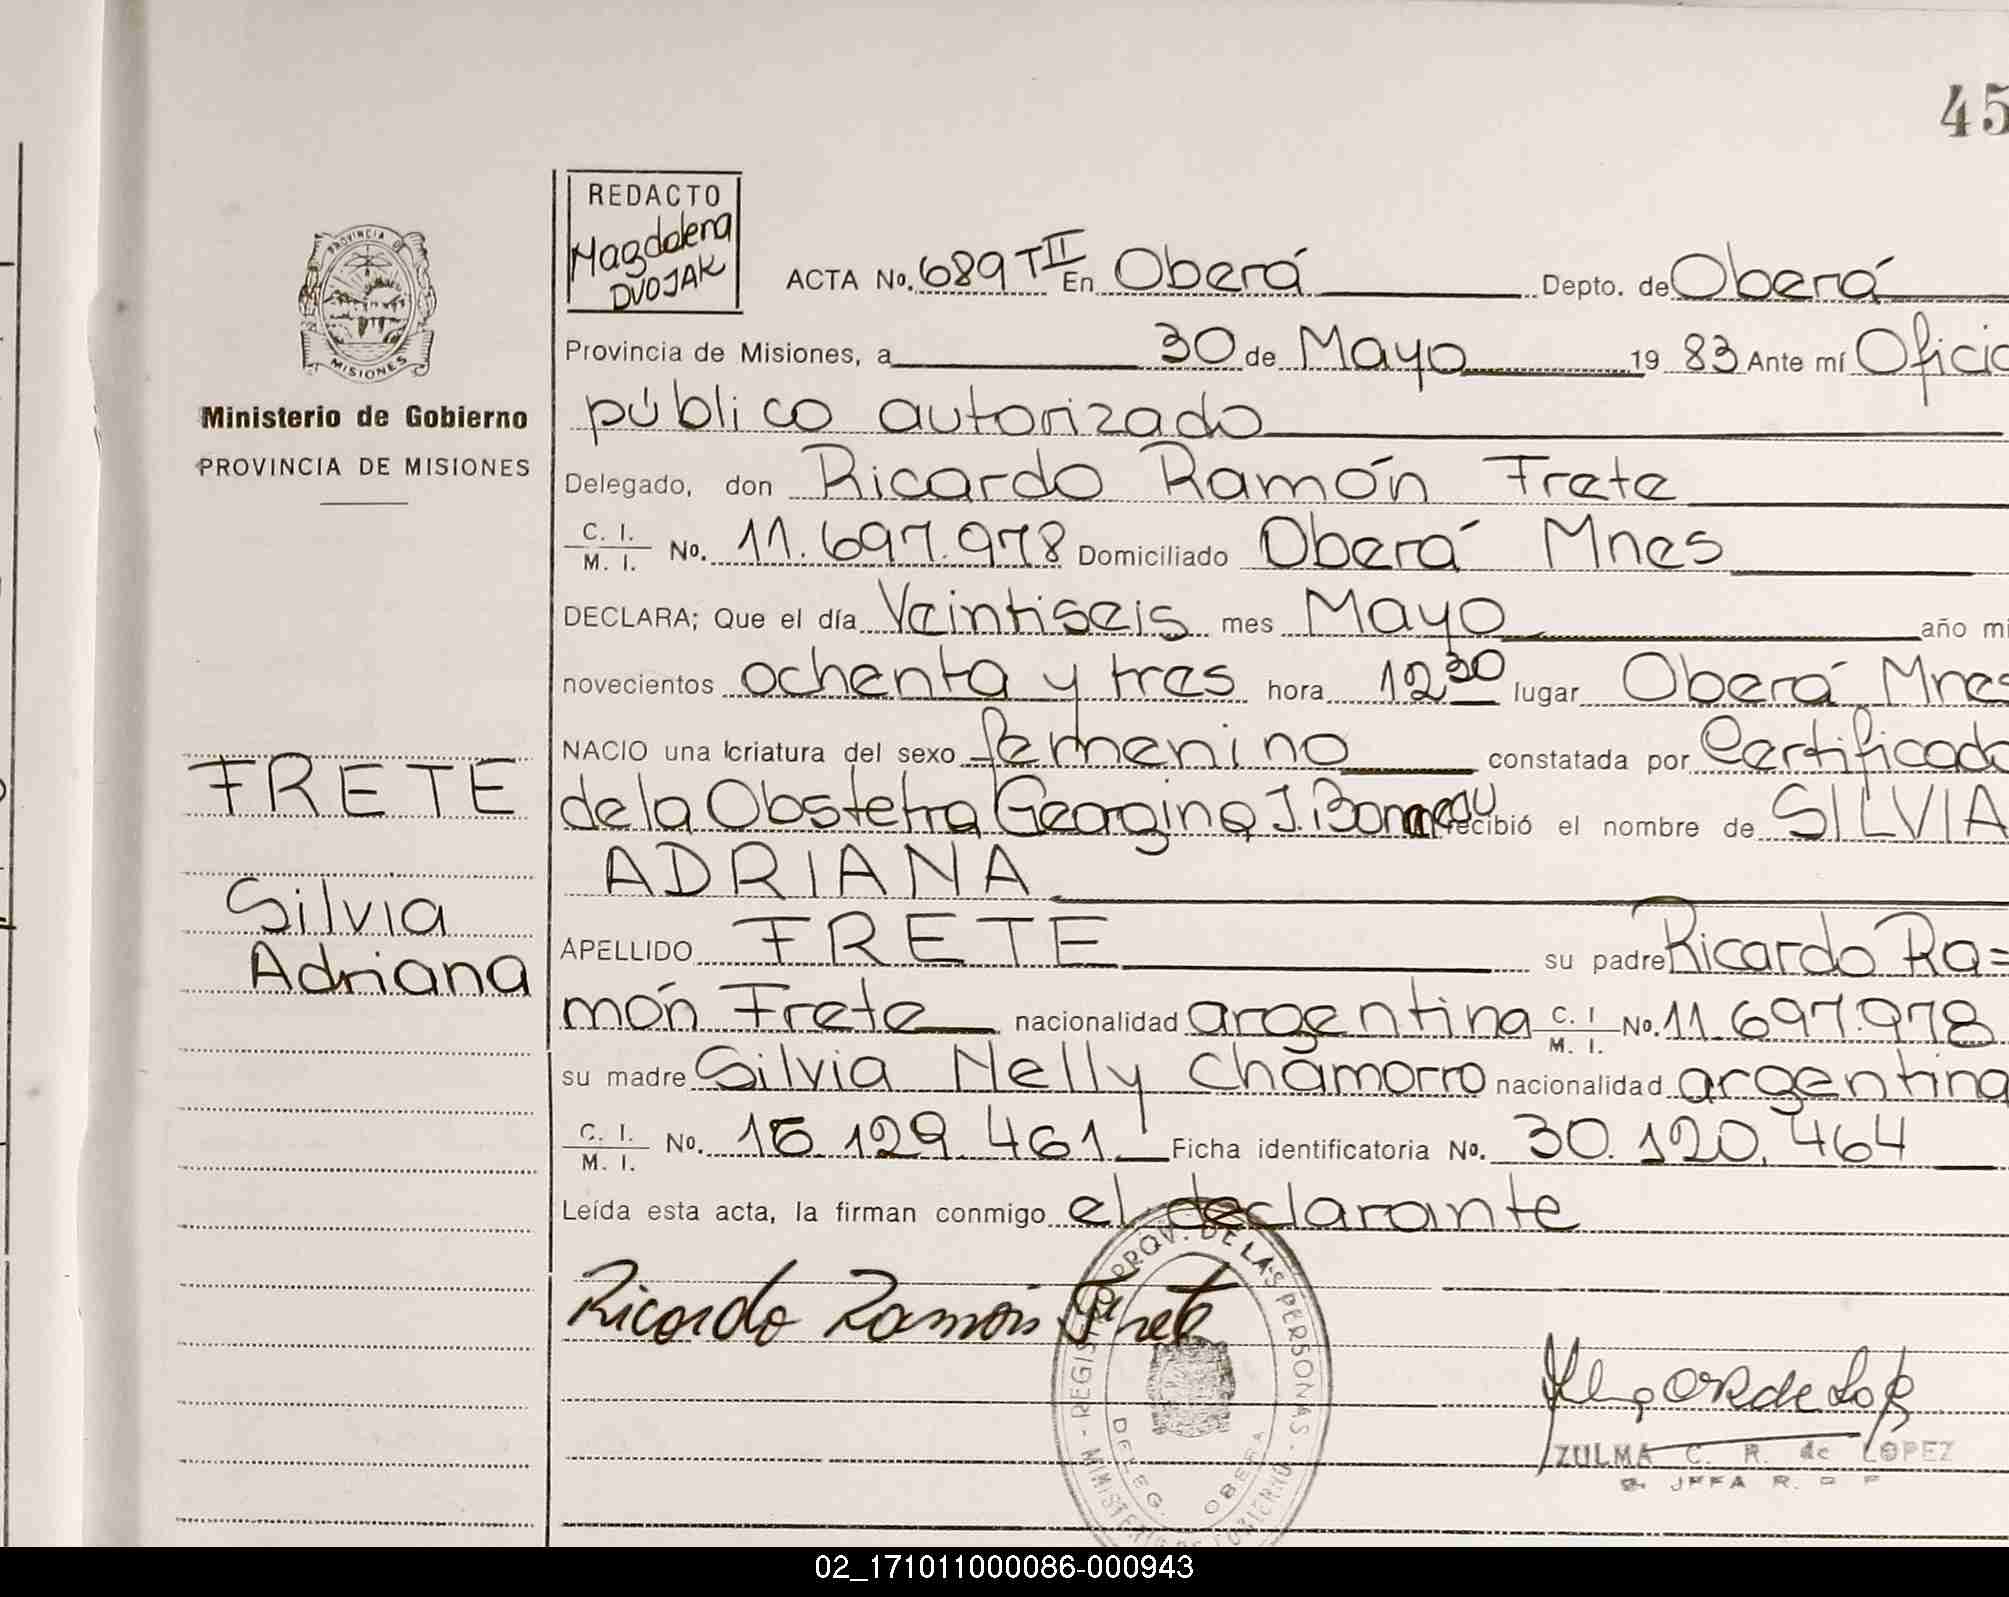 45
REDACTO
Magdalena
DVOJAK
PROVINCIA DE
MISIONES
Ministerio de Gobierno
PROVINCIA DE MISIONES
ACTA No. 689 TII En Oberá Depto. de Oberá
Provincia de Misiones, a 30 de Mayo 19 83 Ante mí Oficia
público autorizado
Delegado, don Ricardo Ramón Frete
C. I.
M. I. No. 11.697.978 Domiciliado Oberá Mnes
DECLARA; Que el día Veintiseis mes Mayo año mi
novecientos ochenta y tres hora 12 30 lugar Oberá Mnes
NACIO una criatura del sexo femenino constatada por Certificado
de la Obstetra Georgina J. recibió el nombre de SILVIA
ADRIANA
APELLIDO FRETE su padre Ricardo Ra=
món Frete nacionalidad argentina C. I M. I. No. 11.697.978
su madre Silvia Nelly Chamorro nacionalidad argentina
C. I.
M. I. No. 129.461 Ficha identificatoria No. 30.120.464
Leída esta acta, la firman conmigo el declarante
FRETE
Silvia
Adriana
Ricardo Ramón Frete
REGISTRO PROV. DE LAS PERSONAS - MINISTERIO DE GOBIERNO -
DELEG. OBERA
ZULMA C. R. de LOPEZ
JEFA R. P.
02_171011000086-000943